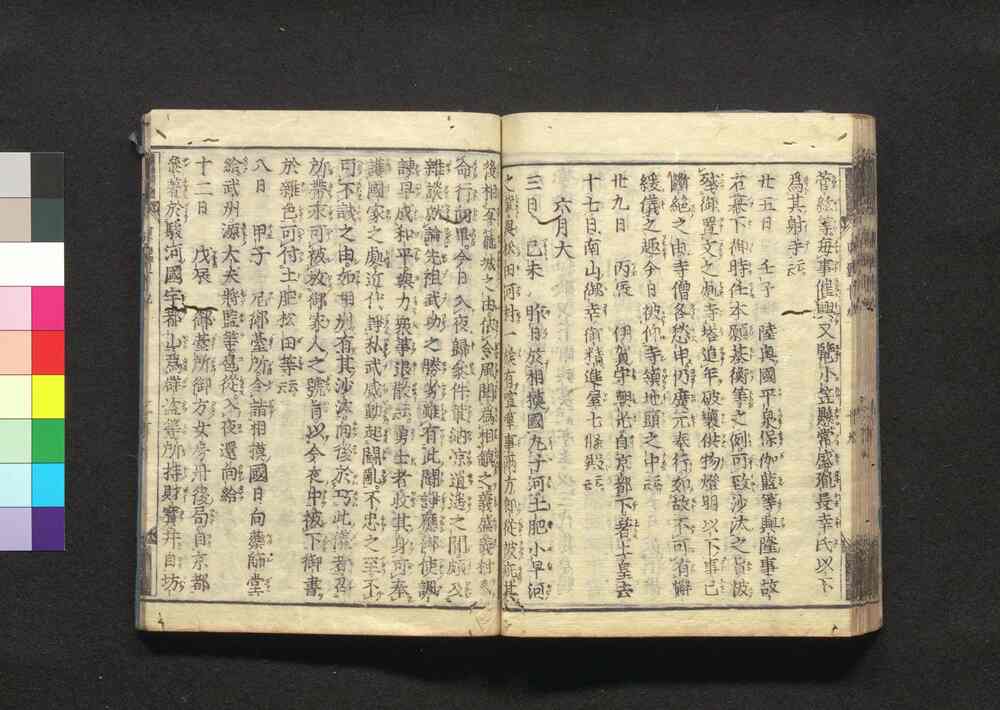 管絃等毎事催興又覽小笠懸常盛胤長幸氏以下
爲其射手云云
廿五日 壬子 陸奥國平泉保伽藍等興隆事故
右幕下御時任本願基衡等之例可致沙汰之旨被
殘御置文之處寺塔追年破壞供物燈明以下事已
斷絶之由寺僧各愁申仍廣元奉行如故不可有懈
緩儀之趣今日被仰寺領地頭之中云云
廿九日 丙辰 伊賀守朝光自京都下著上皇去
十七日南山御幸御精進屋七條殿云云
六月大
三日 己未 昨日於相摸國丸子河土肥小早河
之輩與松田河村一族有喧嘩事兩方郎從被疵其
後相互籠城之由依令風聞爲相鎭之義盛義村奉
命行向畢今日入夜歸參件輩納凉逍遥之間頗及
雜談就論先祖武功之勝劣雖有此鬪諍應御使諷
諫早成和平與力衆等退散云云勇士者收其身可奉
護國家之處近代諍私武威動起鬪亂不忠之至不
可不誡之由如相州有其沙汰向後於巧此濫吹者召
所帶永可被放御家人之號旨以今夜中被下御書
於雜色可付土肥松田等云云
八日 甲子 尼御臺所令詣相摸國日向藥師堂
給武州源大夫將監等扈從入夜還向給
十二日 戊辰 御臺所御方女房丹後局自京都
參著於駿河國宇都山爲群盜等所持財寶并自坊